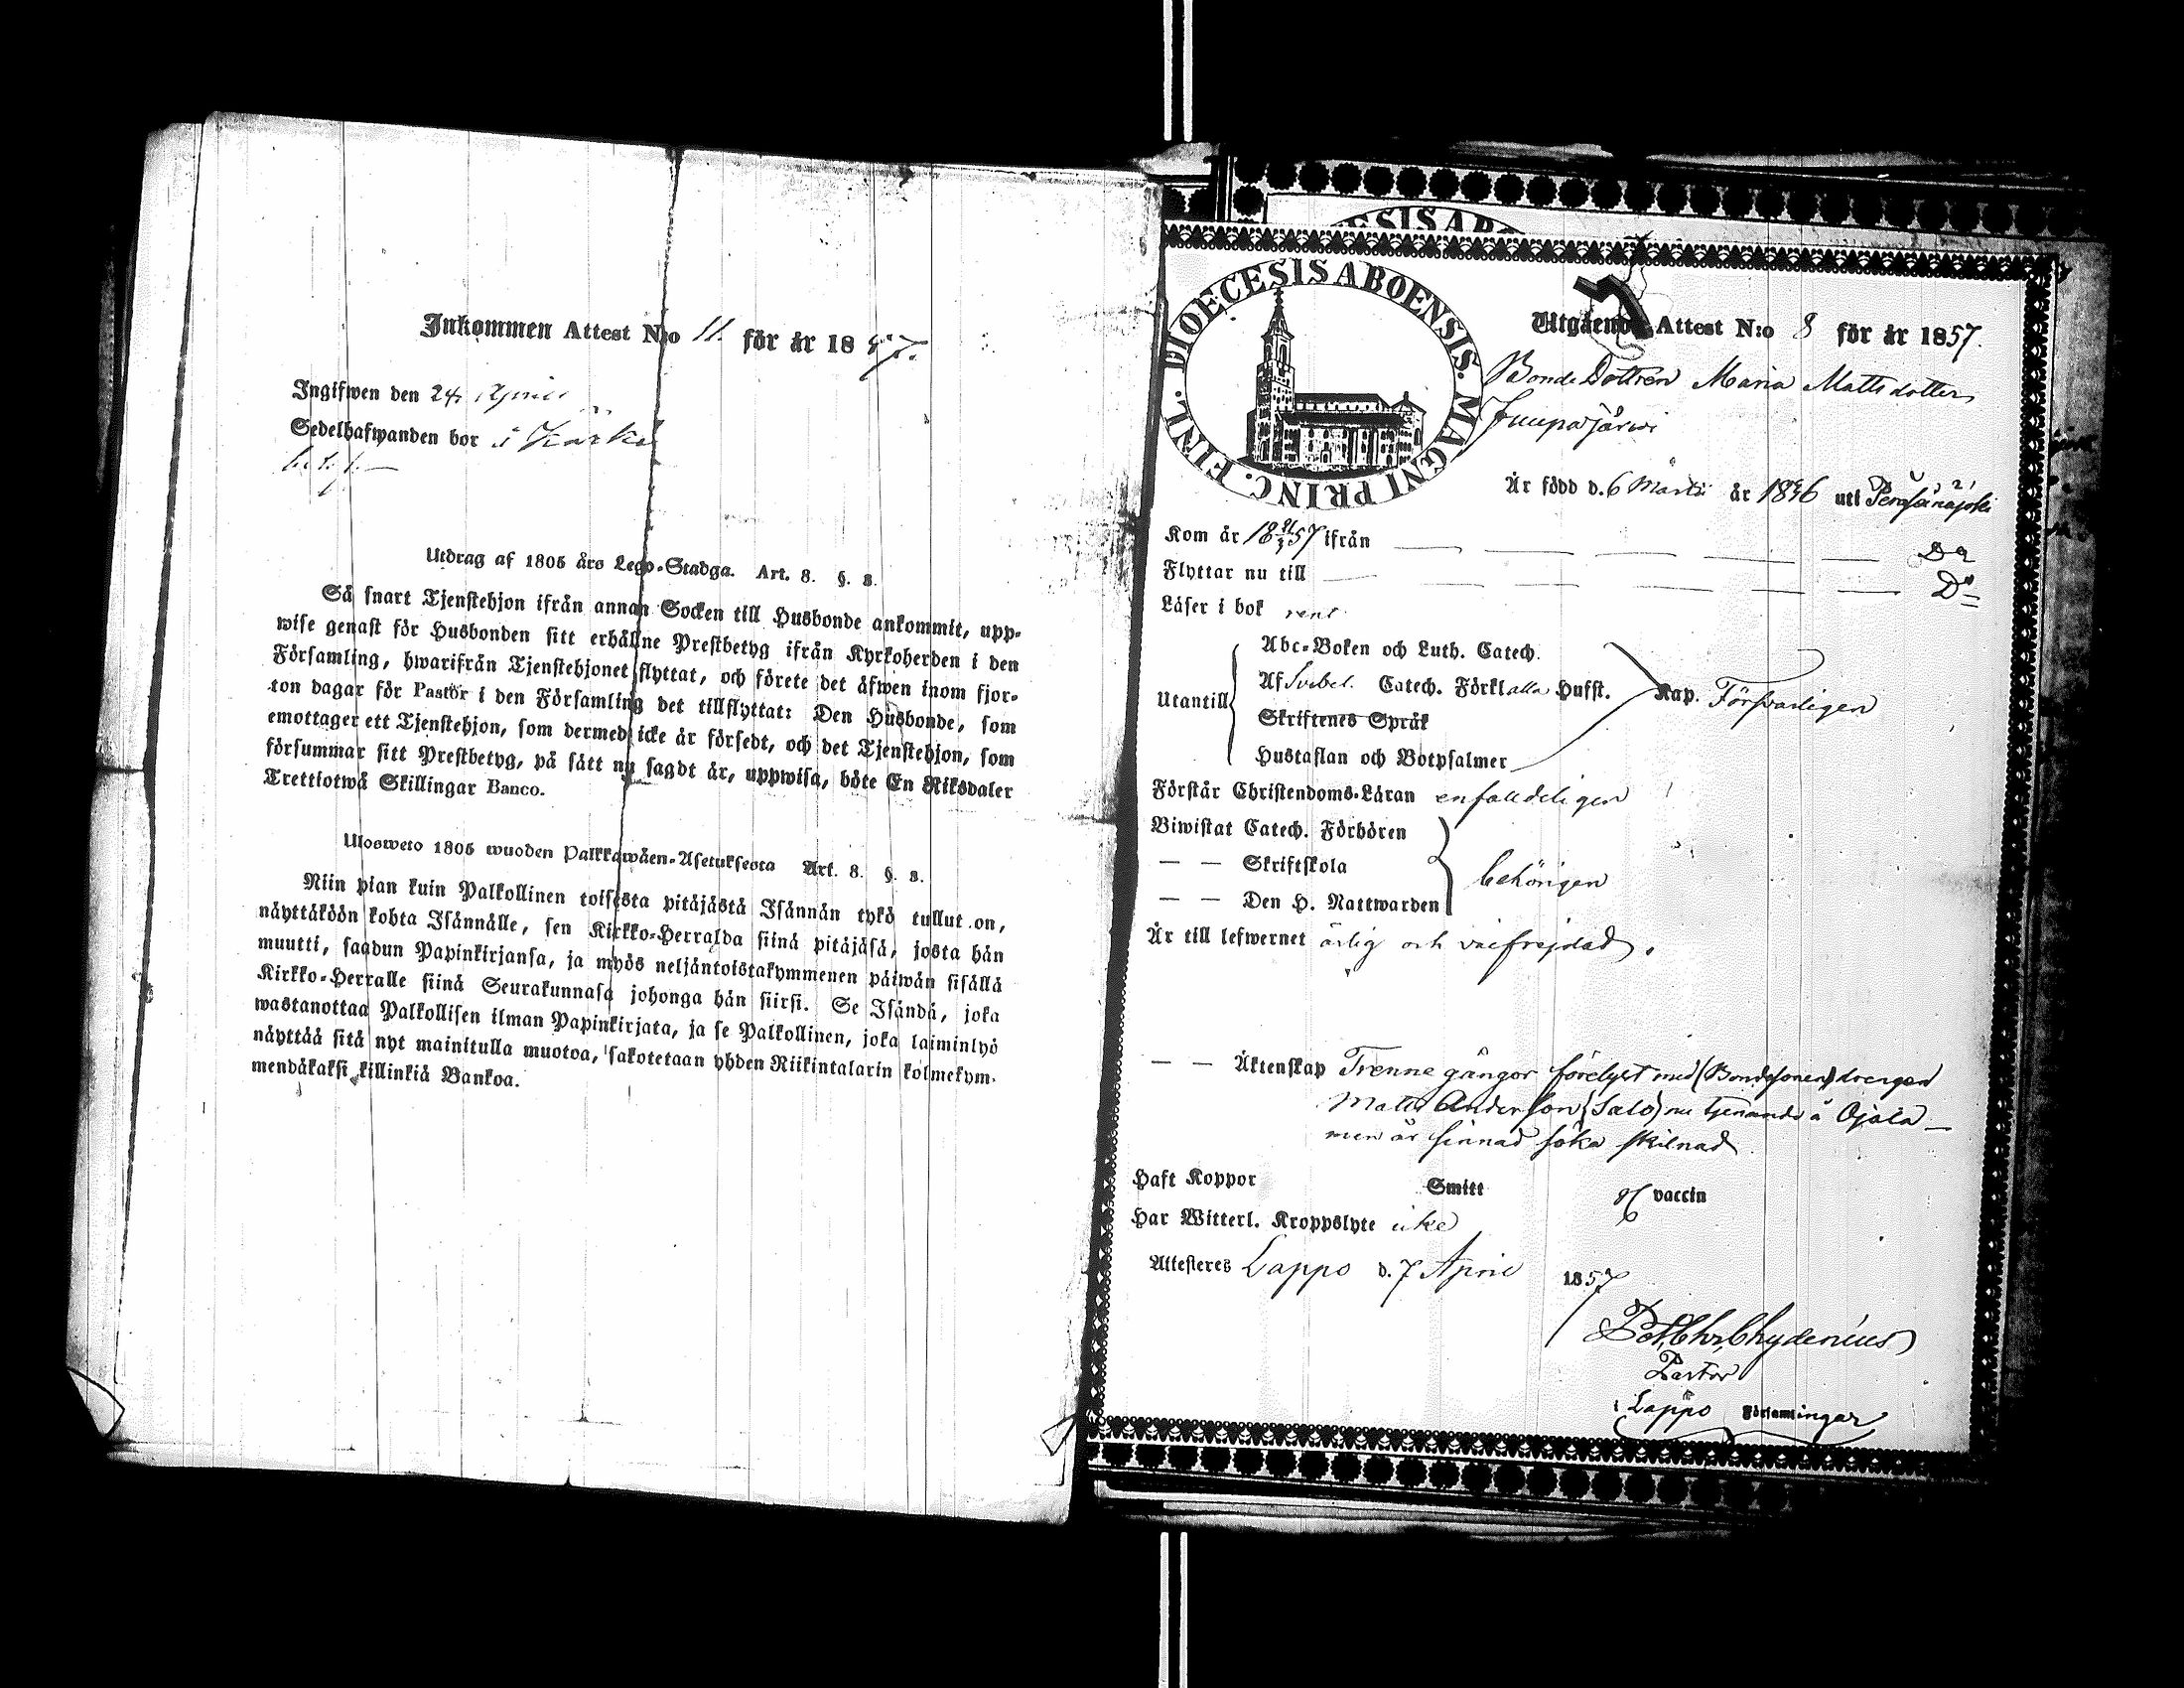 Inkommen Attest N:o 11. för år 1857.
Ingifwen den 24 April
Sedelhafwanden bor i
Utdrag af 1805 års Lego-Stadga. Art. 8. §. 8.
Så snart Tjenstehjon ifrån annan Socken till Husbonde ankommit, upp-
wise genast för Husbonden sitt erhållne Prestbetyg ifrån Kyrkoherden i den
Församling, hwarifrån Tjenstehjonet flyttat, och förete det äfwen inom fjor-
ton dagar för Pastor i den Församling det tillflyttat: Den Husbonde, som
emottager ett Tjenstehjon, som dermed icke är försedt, och det Tjenstehjon, som
försummar sitt Prestbetyg, på sätt nu sagdt är, uppwisa, böte En Riksdaler
Trettiotwå Skillingar Banco.
Ulosweto 1805 wuoden Palkkawäen-Asetuksesta Art. 8. §. 8.
Niin pian kuin Palkollinen toisesta pitäjästä Isännän tykö tullut on,
näyttäköön kohta Isännälle, sen Kirkko-Herralda siinä pitäjäsä, josta hän
muutti, saadun Papinkirjansa, ja myös neljäntoistakymmenen päiwän sisällä
Kirkko-Herralle siinä Seurakunnasa johonga hän siirsi. Se Isändä, joka
wastanottaa Palkollisen ilman Papinkirjata, ja se Palkollinen, joka laiminlyö
näyttää sitä nyt mainitulla muotoa, sakotetaan yhden Riikintalarin kolmekym-
mendäkaksi killinkiä Bankoa.
DIOECESIS ABOENSIS. MAGNI PRINC. FINL.
Utgående Attest N:o 8 för år 1857.
Bonde Dottren Maria Mattsdotter
Juupajärwi
Är född d. 6 Martii år 1836 uti Peräseinäjoki
Kom år 18 21/3 57 ifrån — — — — — Do
Flyttar nu till — — — — — Do
Läser i bok rent
Abc-Boken och Luth. Catech.
Utantill Af Svebel. Catech. Förkl alla Hufst. Kap. Försvarligen
Skriftenes Språk
Hustaflan och Botpsalmer
Förstår Christendoms-Läran enfalldeligen
Biwistat Catech. Förhören
— — Skriftskola behörigen
— — Den H. Nattwarden
Är till lefwernet ärlig och välfrejdad.
— — Äktenskap Trenne gångor förelyst med (Bondesonen) drengen
Matts Andersson (Salo) nu tjenande å Ojala —
men är sinnad söka skilnad.
Haft Koppor Smitt af vaccin
Har Witterl. Kroppslyte icke
Attesteres Lappo d. 7 April 1857
Pet. Chr. Chydenius
Pastor
i Lappo Församlingar